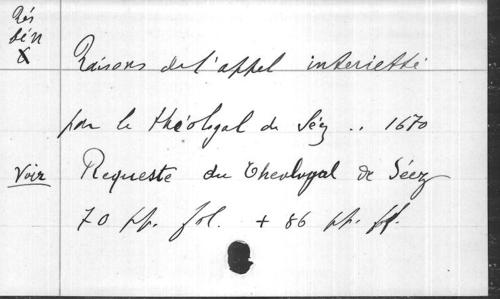 Rés
Sém
X
Raisons de l'appel interietté
par le théologal de Séz .. 1670
Voir Requeste du Theologal de Séez
70 pp. fol. + 86 pp. ff.